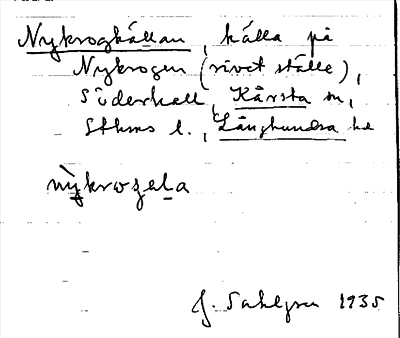 Nykrogkällan, källa på
Nykrogen (rivet ställe),
Söderhall, Kårsta sn,
Sthms l., Långhundra hd
nykrogela
J. Sahlgren 1935